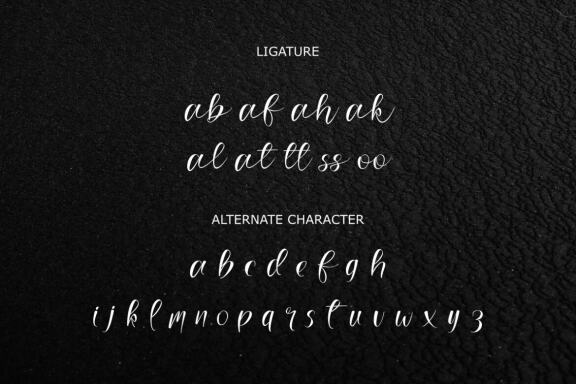 LIGATURE
ab af ah ak
al at tt ss oo
ALTERNATE CHARACTER
a b c d e f g h
i j k l m n o p q r s t u v w x y z